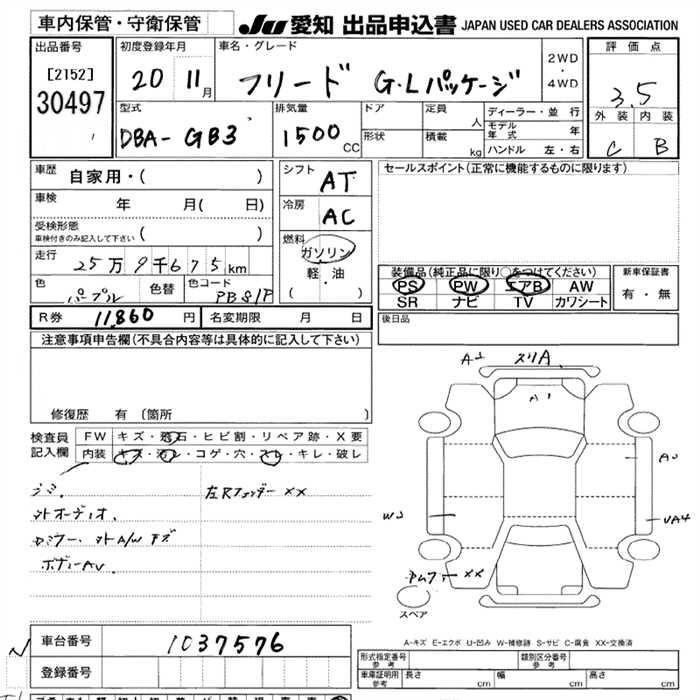 車内保管・守衛保管
JU 愛知 出品申込書 JAPAN USED CAR DEALERS ASSOCIATION
出品番号
[2152]
30497
初度登録年月
20 11月
車名・グレード
フリード G・Lパッケージ
2WD
・
4WD
評価点
3.5
外装 内装
C B
型式
DBA- GB3
排気量
1500 CC
ドア
形状
定員
人
積載
kg
ディーラー・並行
モデル年式 年
ハンドル 左・右
車歴
自家用・( )
車検
年 月( 日)
受検形態
車検付きのみ記入して下さい ( )
走行
25万9千675km
色
パープル
色替
色コード
PB81P
シフト
AT
冷房
AC
燃料
ガソリン
軽・油
( )
セールスポイント(正常に機能するものに限ります)
装備品(純正品に限り○をつけてください)
PS PW エアB AW
SR ナビ TV カワシート
新車保証書
有・無
R券 11,860 円
名変期限 月 日
後日品
注意事項申告欄(不具合内容等は具体的に記入して下さい)
修復歴 有(箇所 )
検査員
記入欄
FW キズ・飛石・ヒビ割・リペア跡・X要
内装 キズ・汚レ・コゲ・穴・スレ・キレ・破レ
シミ.
左右フェンダーXX
外オーディオ.
ボディーAU.
A1
A2
W2
UA4
XX
スペア
A-キズ E-エクボ U-凹み W-補修跡 S-サビ C-腐食 XX-交換済
車台番号
1037576
登録番号
形式指定番号
参考
類別区分番号
参考
車庫証明用
参考
長さ cm
幅 cm
高さ cm